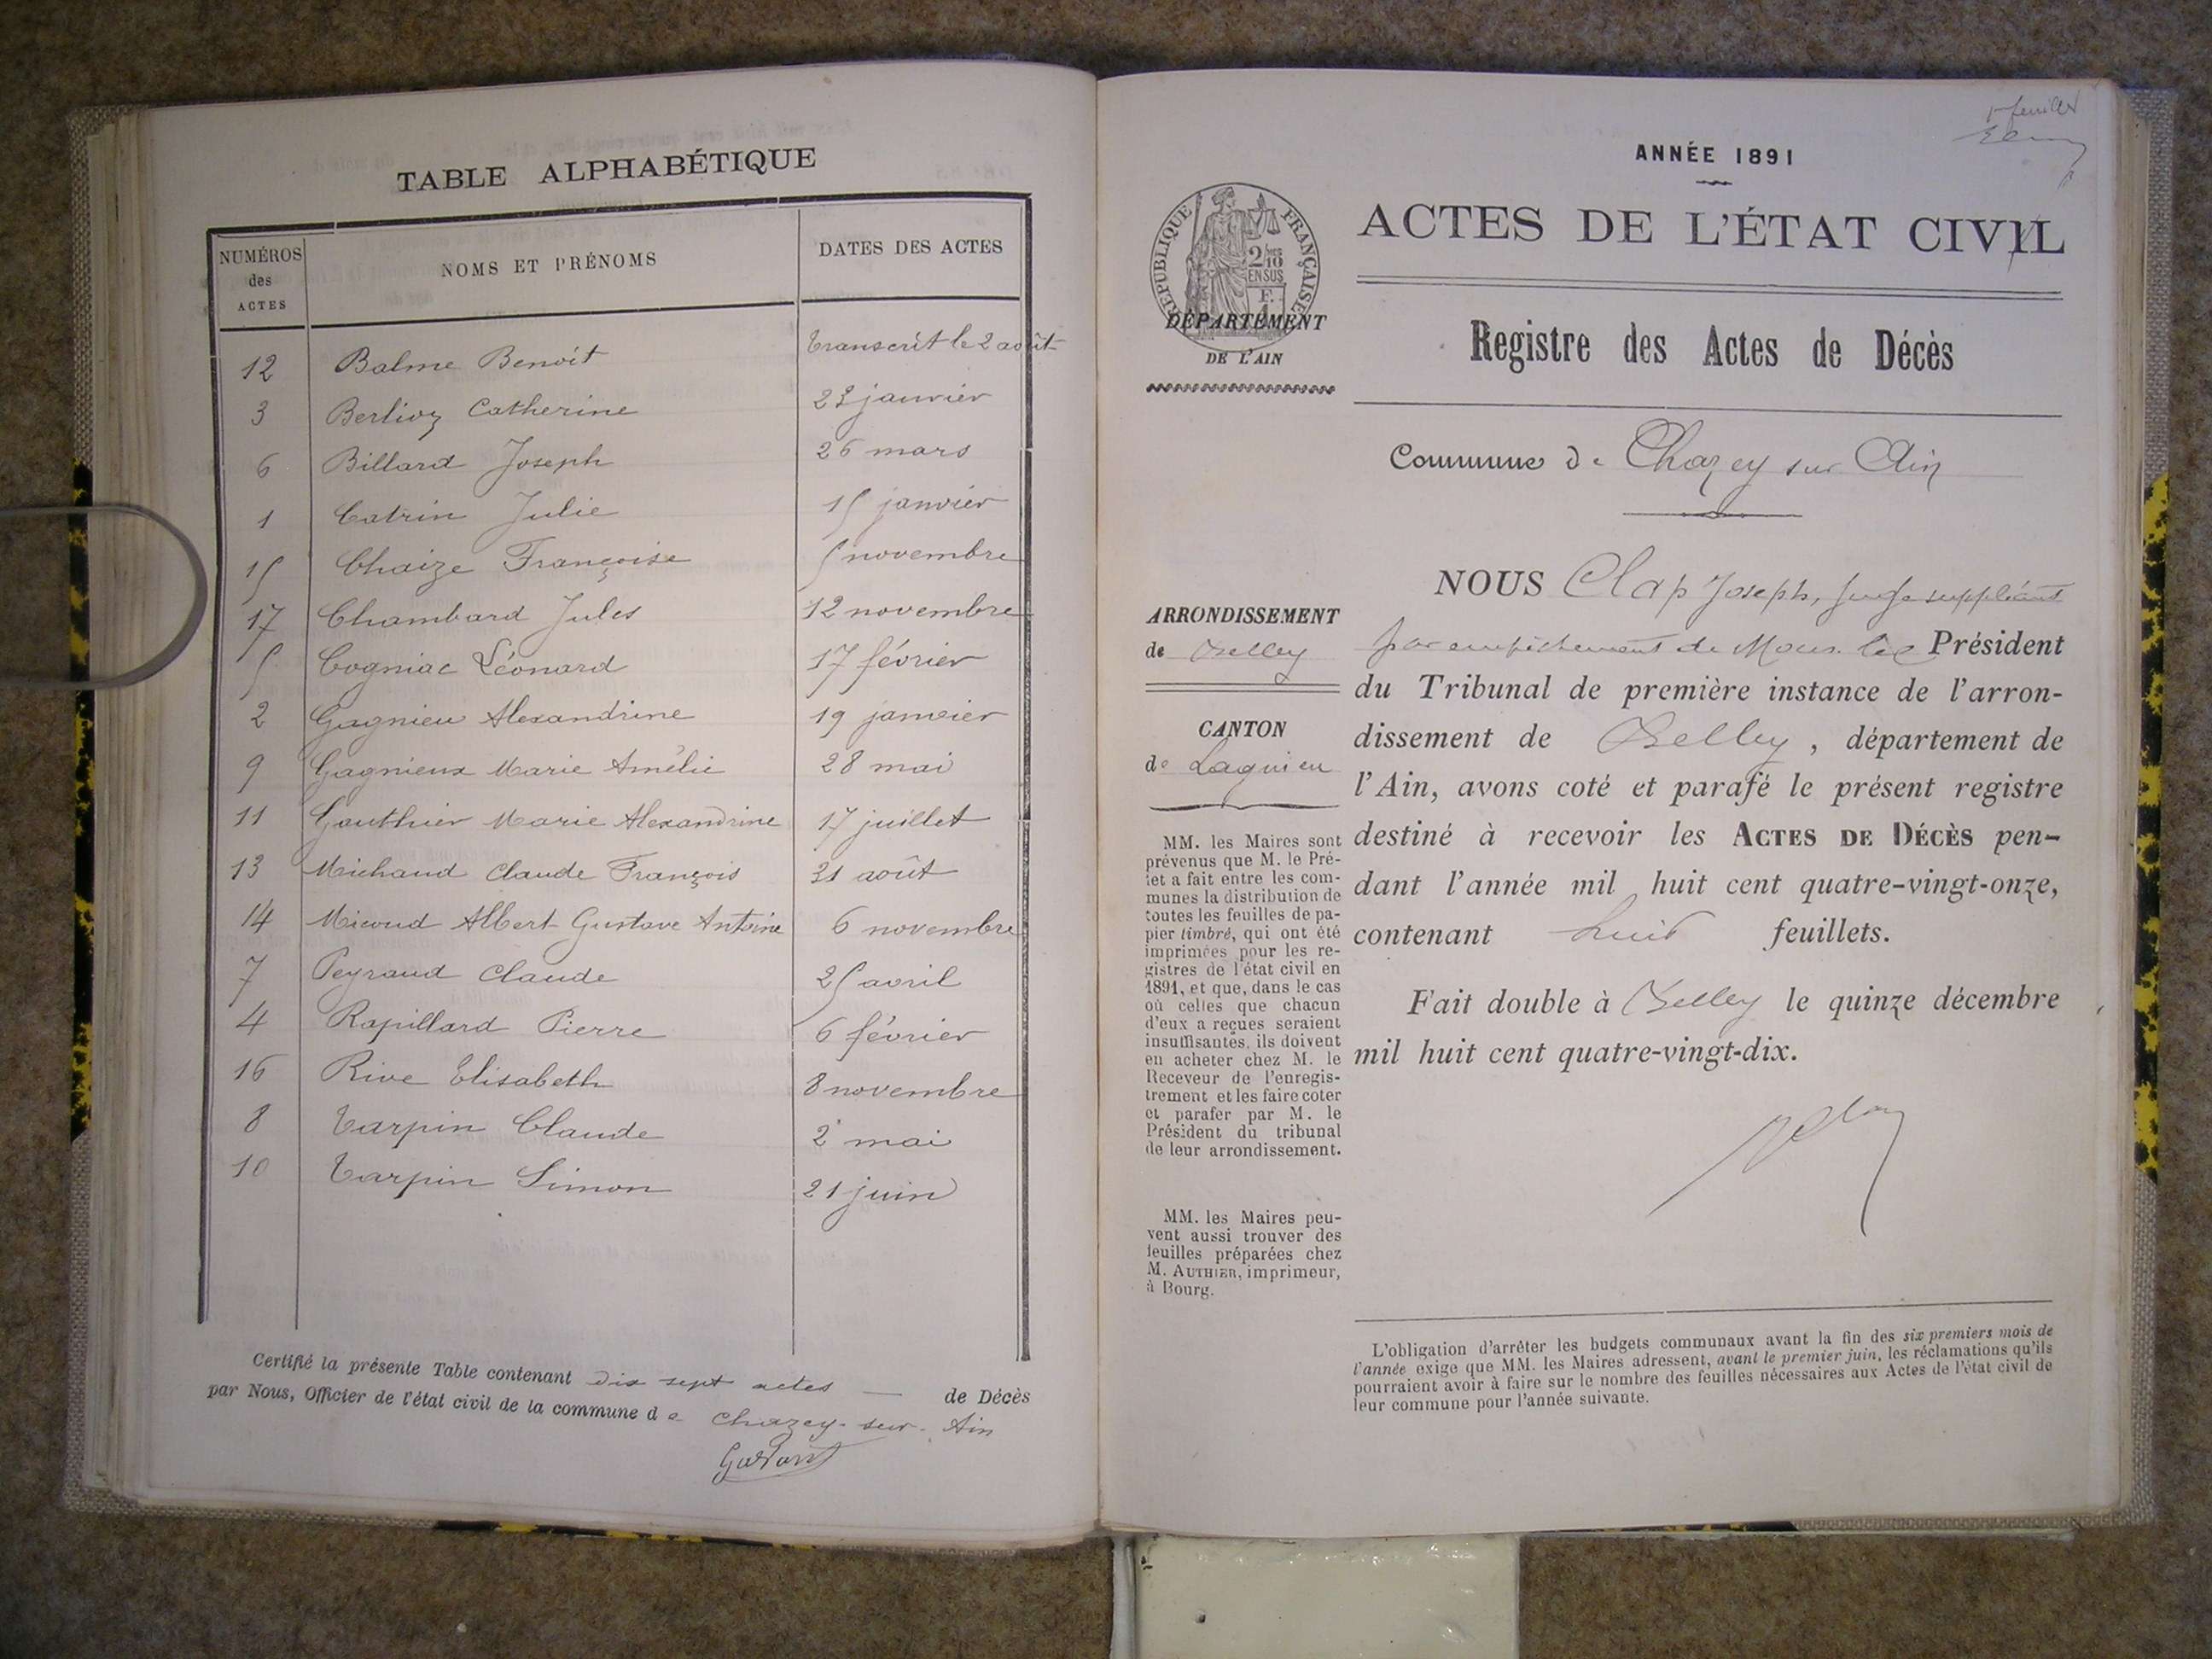 TABLE ALPHABÉTIQUE
NUMÉROS des ACTES NOMS ET PRÉNOMS DATES DES ACTES
12 Balme Benoit transcrit le 2 août
3 Berlioz Catherine 23 janvier
6 Billard Joseph 26 mars
1 Catrin Julie 15 janvier
15 Chaize Françoise 5 novembre
17 Chambard Jules 12 novembre
5 Cogniac Léonard 17 février
2 Gagnieu Alexandrine 19 janvier
9 Gagnieux Marie Amélie 28 mai
11 Gauthier Marie Alexandrine 17 juillet
13 Michaud Claude François 31 août
14 Micoud Albert Gustave Antoine 6 novembre
7 Peyraud Claude 25 avril
4 Rapillard Pierre 6 février
16 Rive Elisabeth 8 novembre
8 Tarpin Claude 2 mai
10 Tarpin Simon 21 juin
Certifié la présente Table contenant dix sept actes — de Décès
par Nous, Officier de l'état civil de la commune de Chazey-sur-Ain
1er feuillet
ANNÉE 1891
ACTES DE L'ÉTAT CIVIL
RÉPUBLIQUE FRANÇAISE
2/10 EN SUS
DÉPARTEMENT
DE L'AIN
Registre des Actes de Décès
Commune de Chazey sur Ain
ARRONDISSEMENT
de Belley
CANTON
de Lagnieu
MM. les Maires sont
prévenus que M. le Pré-
fet a fait entre les com-
munes la distribution de
toutes les feuilles de pa-
pier timbré, qui ont été
imprimées pour les re-
gistres de l'état civil en
1891, et que, dans le cas
où celles que chacun
d'eux a reçues seraient
insuffisantes, ils doivent
en acheter chez M. le
Receveur de l'enregis-
trement et les faire coter
et parafer par M. le
Président du tribunal
de leur arrondissement.
MM. les Maires peu-
vent aussi trouver des
feuilles préparées chez
M. AUTHIER, imprimeur,
à Bourg.
NOUS Clap Joseph, juge suppléant
par empêchement de Mons. le Président
du Tribunal de première instance de l'arron-
dissement de Belley, département de
l'Ain, avons coté et parafé le présent registre
destiné à recevoir les ACTES DE DÉCÈS pen-
dant l'année mil huit cent quatre-vingt-onze,
contenant huit feuillets.
Fait double à Belley le quinze décembre
mil huit cent quatre-vingt-dix.
L'obligation d'arrêter les budgets communaux avant la fin des six premiers mois de
l'année exige que MM. les Maires adressent, avant le premier juin, les réclamations qu'ils
pourraient avoir à faire sur le nombre des feuilles nécessaires aux Actes de l'état civil de
leur commune pour l'année suivante.